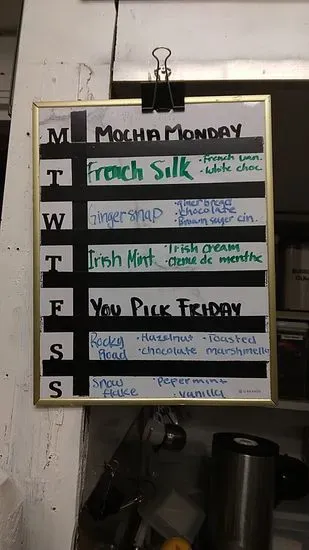 M MOCHA MONDAY
T French Silk · French van. · white choc.
W Gingersnap · gingerbread · chocolate · Brown suger cin.
T Irish Mint · Irish cream · creme de menthe
F YOU PICK FRIDAY
S Rocky Road · Hazelnut · Toasted · chocolate marshmello
S Snow flake · Pepermint · vanilla